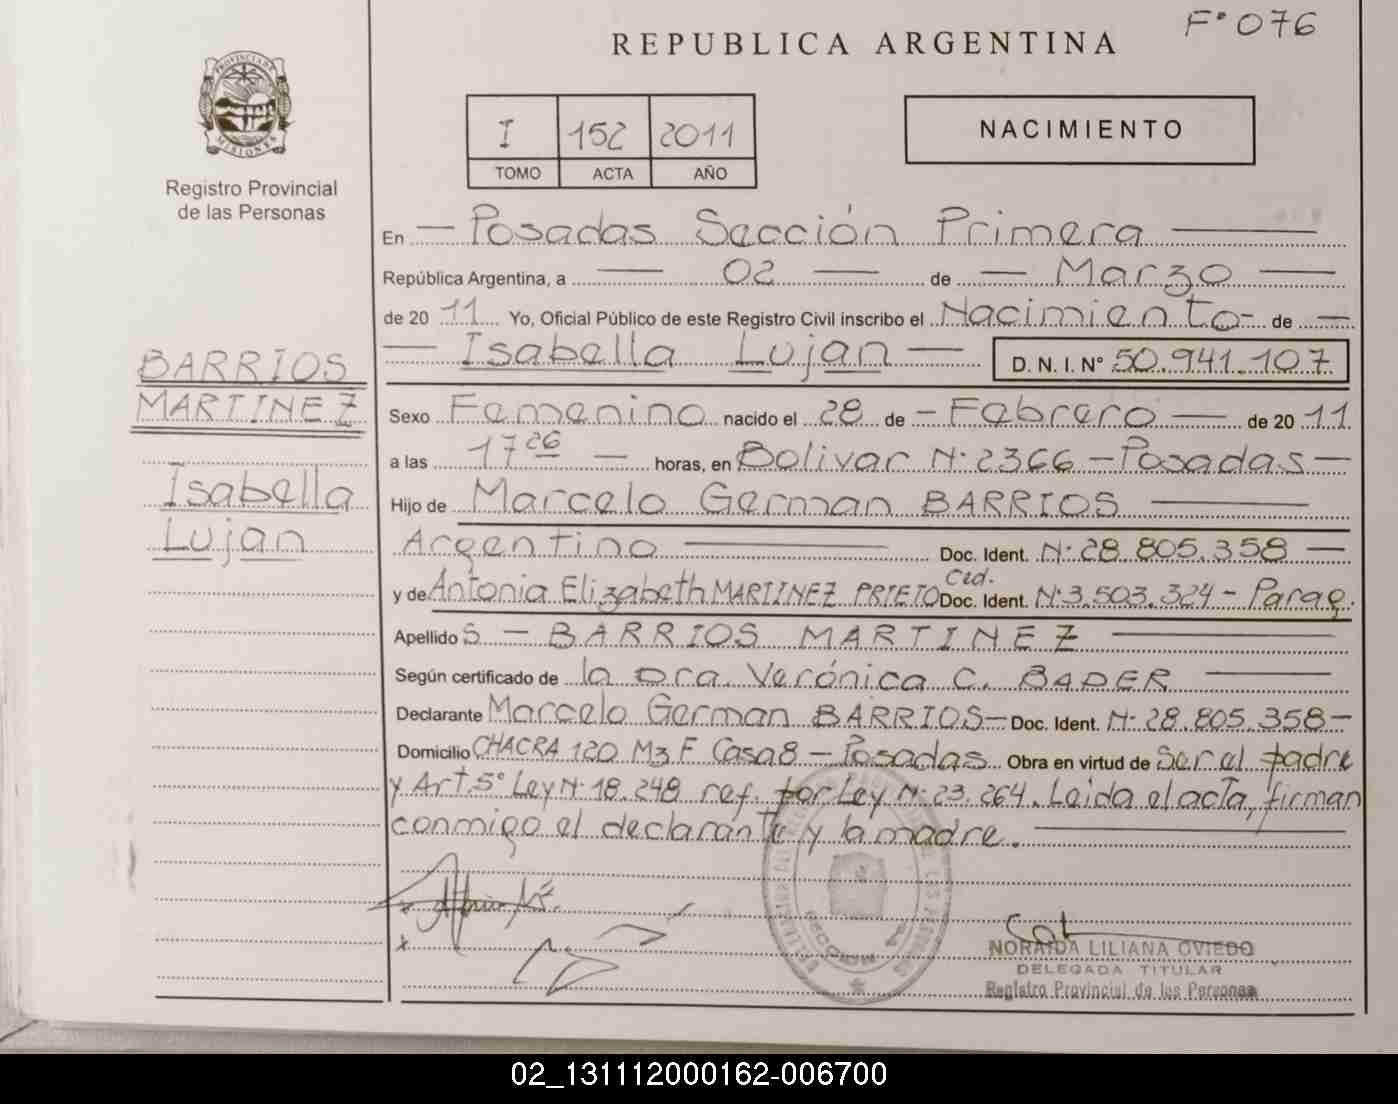 F° 076
REPUBLICA ARGENTINA
PROVINCIA DE
MISIONES
Registro Provincial
de las Personas
I 152 2011
TOMO ACTA AÑO
NACIMIENTO
En — Posadas Sección Primera —
República Argentina, a — 02 — de — Marzo —
de 20 11 Yo, Oficial Público de este Registro Civil inscribo el Nacimiento- de —
— Isabella Lujan — D. N. I. N° 50.941.107
BARRIOS
MARTINEZ
Isabella
Lujan
Sexo Femenino nacido el 28 de - Febrero — de 20 11
a las 17 26 — horas, en Bolivar N· 2366 - Posadas —
Hijo de Marcelo German BARRIOS —
Argentino — Doc. Ident. N· 28.805.358 —
y de Antonia Elizabeth MARTINEZ PRIETO Ced. Doc. Ident. N· 3.503.324 - Parag.
Apellido S — BARRIOS MARTINEZ —
Según certificado de la Dra. Verónica C. BADER —
Declarante Marcelo German BARRIOS — Doc. Ident. N· 28.805.358 —
Domicilio CHACRA 120 Mz F Casa 8 - Posadas Obra en virtud de Ser el padre
y Art. 5° Ley N· 18.248 ref. por Ley N· 23.264. Leida el acta, firman
conmigo el declarante y la madre. —
x
x
SECCION
NORAIDA LILIANA OVIEDO
DELEGADA TITULAR
Registro Provincial de las Personas
02_131112000162-006700